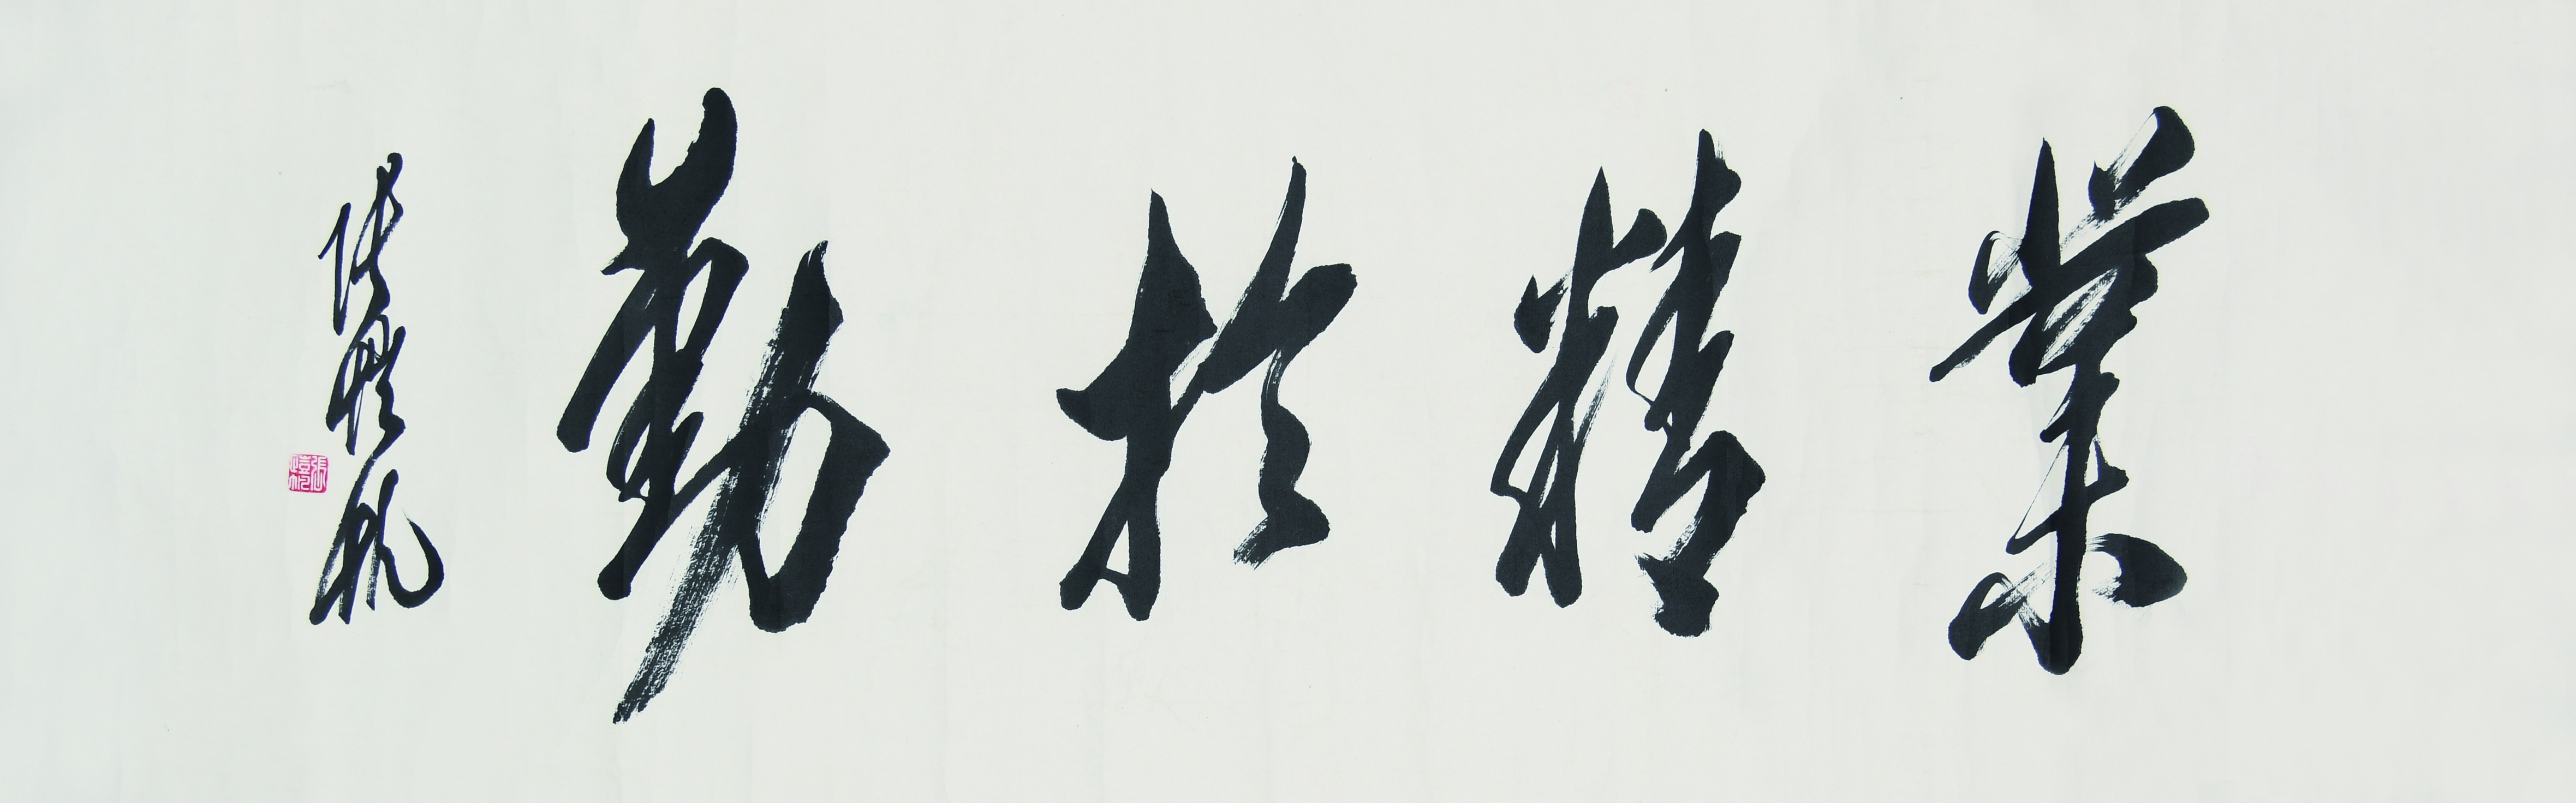 業精於勤
張